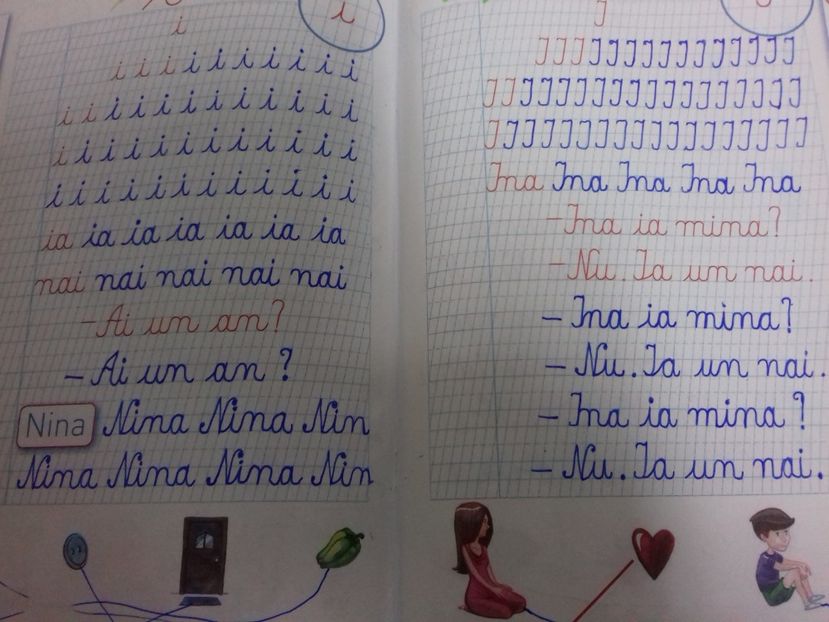 i
i
i i i i i i i i i i
i i i i i i i i i i i i
i i i i i i i i i i i i
i i i i i i i i i i i i
ia ia ia ia ia ia ia
nai nai nai nai nai
– Ai un an?
– Ai un an?
Nina Nina Nina Nin
Nina Nina Nina Nin
I
I I I I I I I I I I I I I I I
I I I I I I I I I I I I I I I I I I
I I I I I I I I I I I I I I I I I I
Ina Ina Ina Ina Ina
– Ina ia mina?
– Nu. Ia un nai.
– Ina ia mina?
– Nu. Ia un nai.
– Ina ia mina?
– Nu. Ia un nai.